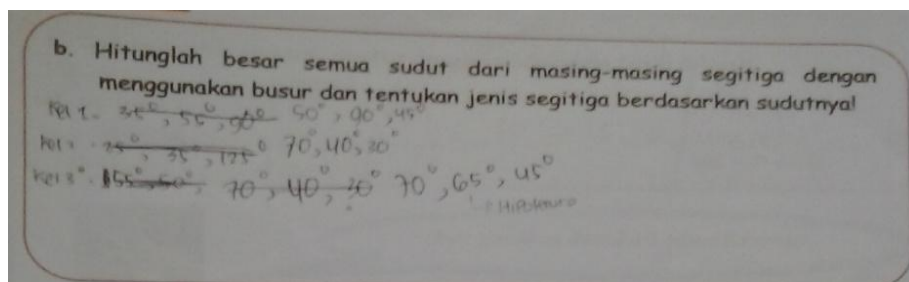 b. Hitunglah besar semua sudut dari masing-masing segitiga dengan
menggunakan busur dan tentukan jenis segitiga berdasarkan sudutnya!
Kel 1. 35°, 55°, 90° 50°, 90°, 45°
25°, 35°, 125° 70°, 40°, 30°
Kel 3°. 70°, 40°, 30° 70°, 65°, 45°